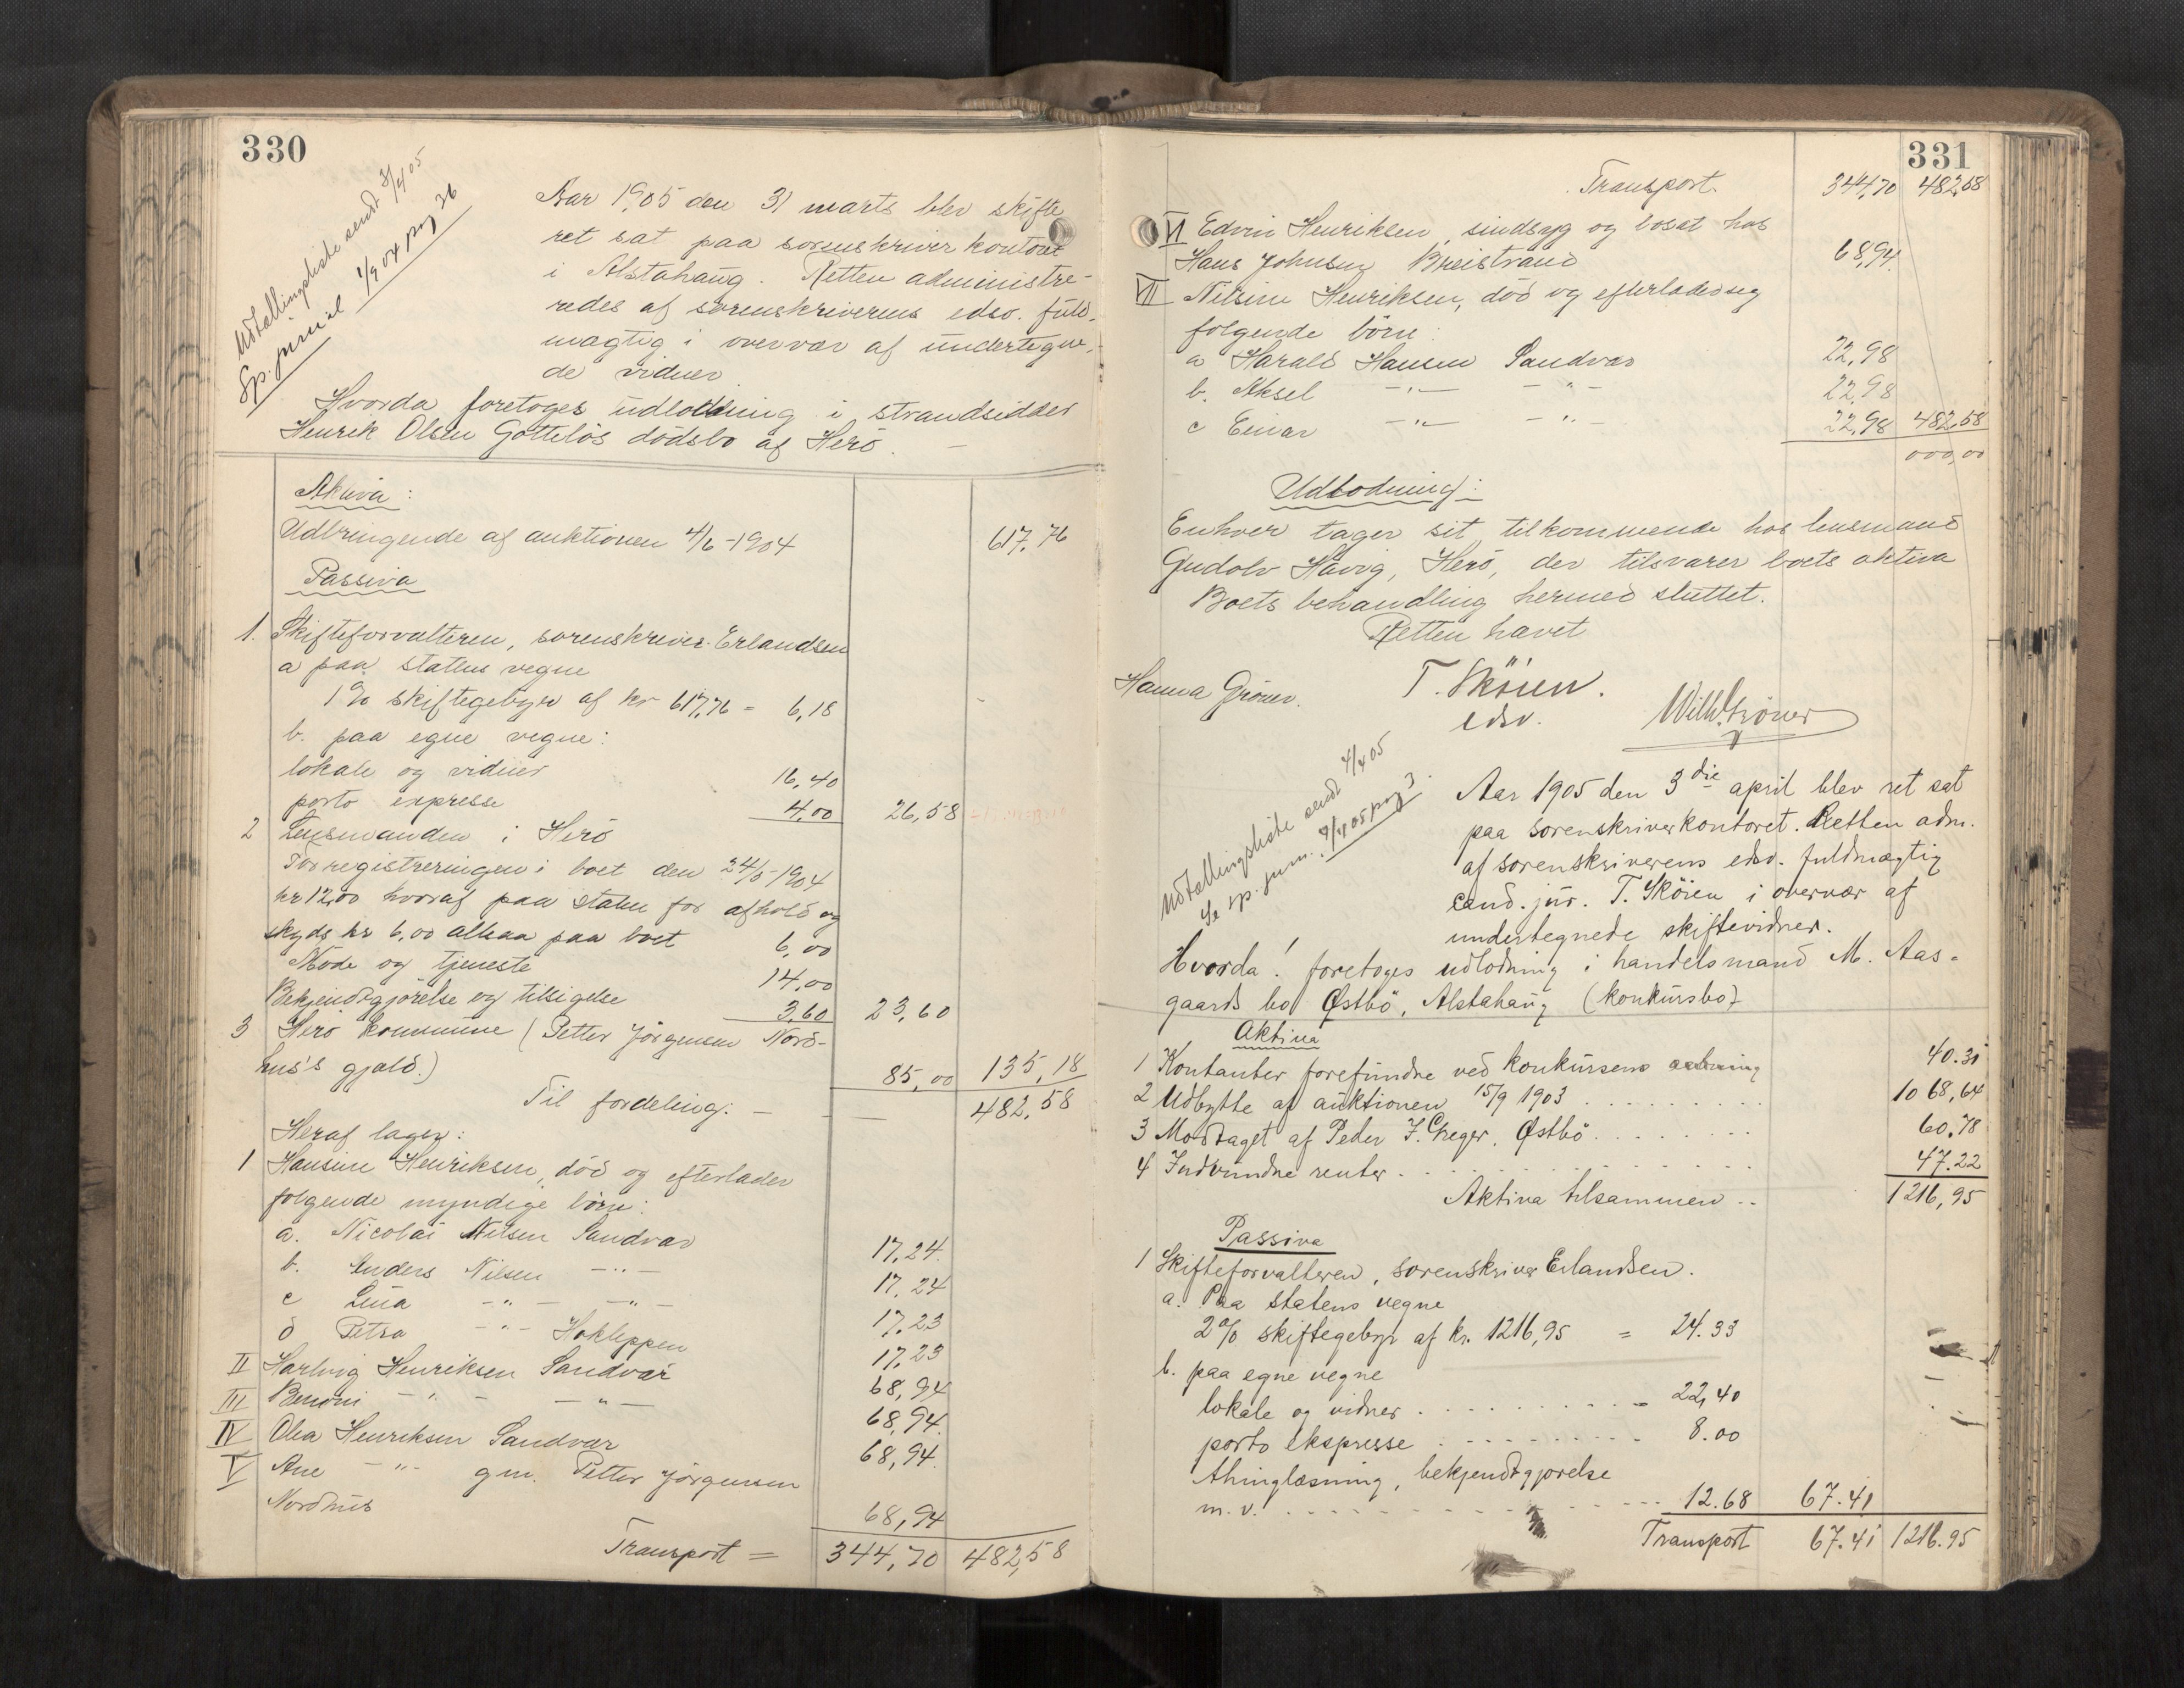 330
Udtællingsliste sendt 3/4 05
Sp. jurnal 1/9 04 pag 26
Aar 1905 den 31 marts blev skifte
ret sat paa sorenskriver kontoret
i Alstahaug. Retten administre-
redes af sorenskriverens edsv. fuld-
mægtig i overvær af undertegne-
de vidner
Hvorda foretoges udlodning i strandsidder
Henrik Olsen Gotteløs dödsbo af Herö.
Aktiva:
Udbringende af auktionen 4/6-1904 617,76
Passiva
1. Skifteforvalteren, sorenskriver Erlandsen
a paa statens vegne
1% skiftegebyr af kr 617,76 = 6,18
b. paa egne vegne:
lokale og vidner 16,40
porto expresse 4,00 26,58
2 Lensmanden i Herö
For registreringen i boet den 24/5-1904
kr 12,00 hvoraf paa staten for afhold og
skyds kr 6,00 altsaa paa boet 6,00
Möde og tjeneste 14,00
Bekjendtgjörelse og tilsigelse 3,60 23,60
3 Herö kommune (Petter Jörgensen Nord-
hus's gjæld.) 85,00 135,18
Til fordeling. — — 482,58
Heraf tager:
1 Hansine Henriksen, död og efterlader
folgende myndige börn:
a. Nicolai Nilsen Sandvær 17,24
b. Anders Nilsen —"— 17,24
c Lina —"— —"— 17,23
d Petra —"— Hokleppen 17,23
II Hartvig Henriksen Sandvær 68,94
III Benoni —"— —"— 68,94
IV Olea Henriksen Sandvær 68,94
V Ane —"— gm. Petter Jörgensen
Nordhus 68,94
Transport = 344,70 482,58
331
Transport 344,70 482,58
VI Edvin Henriksen, sindsyg og bosat hos
Hans Johnsen Breistrand 68,94
VII Nilsine Henriksen, död og efterladende sig
folgende börn:
a Harald Hansen Sandvær 22,98
b. Aksel —"— —"— 22,98
c Einar —"— —"— 22,98 482,58
000,00
Udlodning:
Enhver tager sit tilkommende hos lensmand
Gudolv Håvig, Herö, der tilsvarer boets aktiva
Boets behandling hermed sluttet.
Retten hævet
Hanna Gröner. T. Sköien. Wilh. Gröner
edsv.
Udtællingsliste sendt 4/4 05
Se sp. jurn. 7/4 05 pag 3.
Aar 1905 den 3die april blev ret sat
paa sorenskriverkontoret. Retten adm.
af sorenskriverens edsv. fuldmægtig
cand. jur. T. Sköien i overvær af
undertegnede skiftevidner.
Hvorda! foretoges udlodning i handelsmand M. Aas-
gaards bo Østbö, Alstahaug (konkursbo)
Aktiva
1 Kontanter forefundne ved konkursens aabning 40.31
2 Udbytte af auktionen 15/9 1903 1068,64
3 Modtaget af Peder J. Greger, Østbö 60,78
4 Indvundne renter 47.22
Aktiva tilsammen 1216,95
Passiva
1 Skifteforvalteren, sorenskriver Erlandsen.
a. Paa statens vegne
2% skiftegebyr af kr. 1216,95 = 24.33
b. paa egne vegne
lokale og vidner 22,40
porto ekspresse 8.00
thinglæsning, bekjendtgjörelse
m.v. 12.68 67.41
Transport 67.41 1216.95